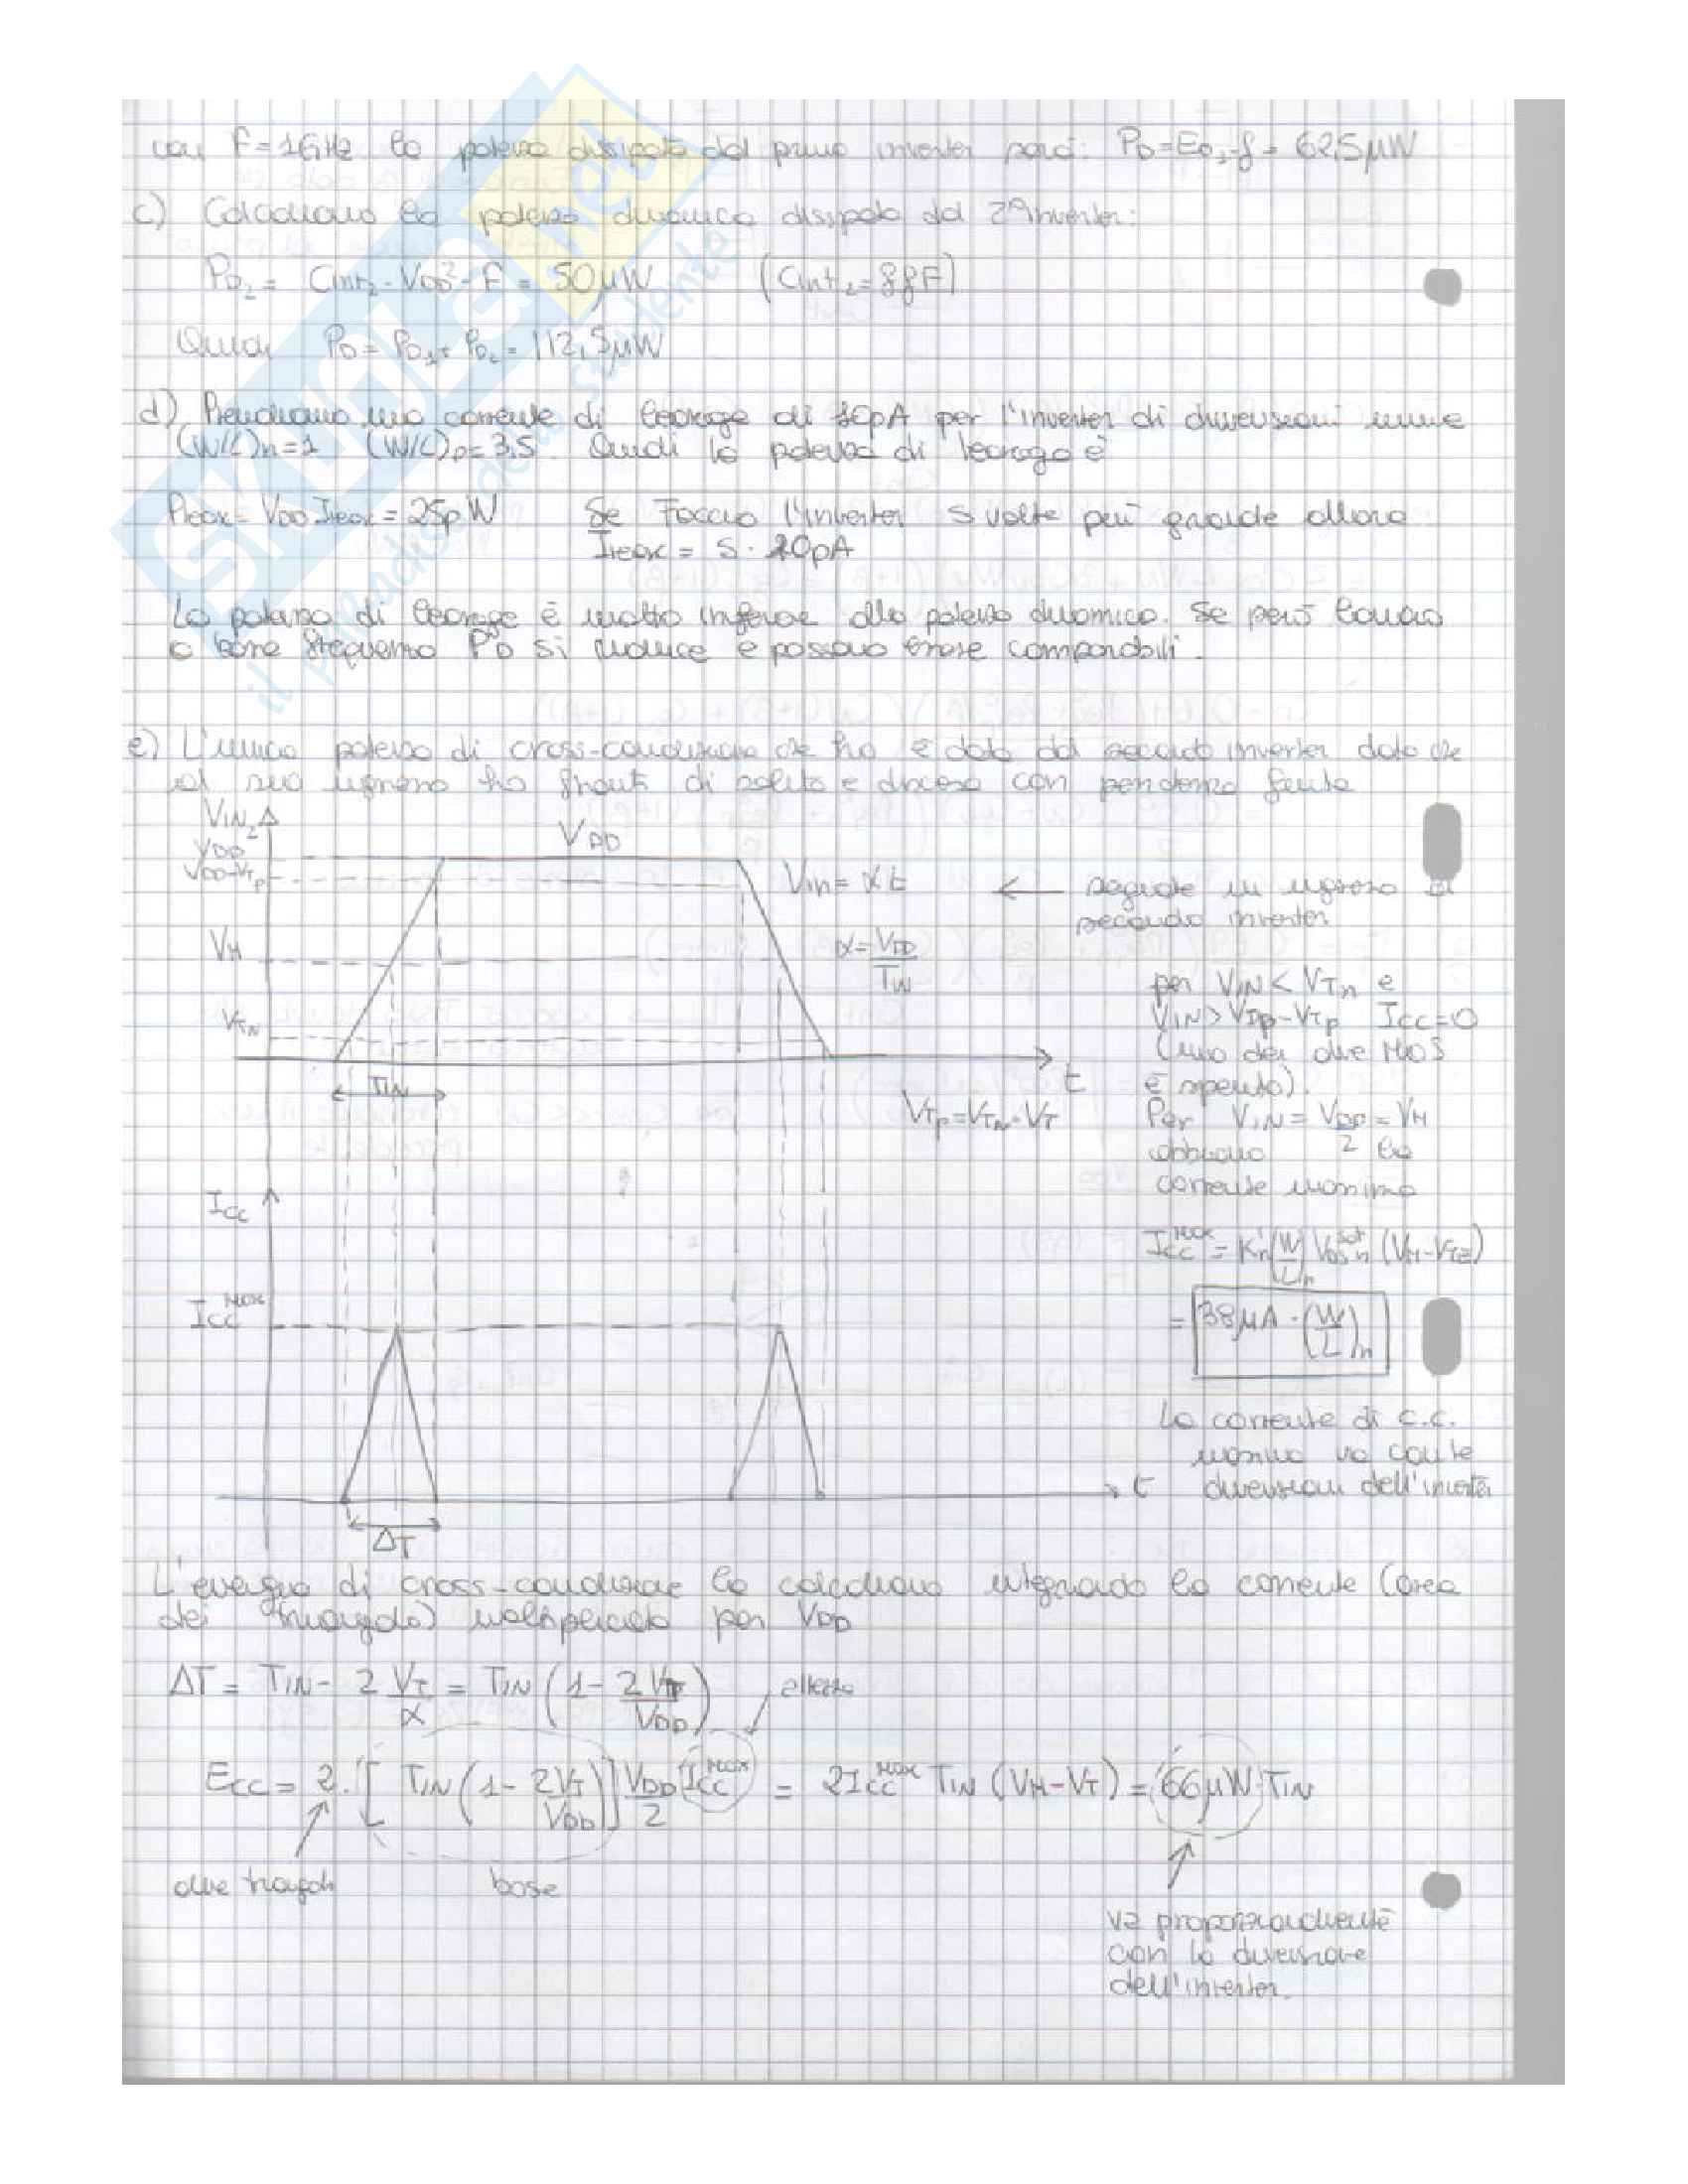 con F=1GHz la potenza dissipata dal primo inverter sarà: PD=ED1·f = 62,5μW
c) Calcoliamo la potenza dinamica dissipata dal 2° Inverter:
PD2 = Cint2·VDD²·F = 50μW (Cint2=8fF)
Quindi PD = PD1+PD2 = 112,5μW
d) Prendiamo una corrente di leakage di 10pA per l'inverter di dimensioni minime
(W/L)n=1 (W/L)p=3,5. Quindi la potenza di leakage è
Pleak = VDD·Ileak = 25pW Se Faccio l'inverter S volte più grande allora
Ileak = S·10pA
La potenza di leakage è molto inferiore alla potenza dinamica. Se però lavoro
a bassa frequenza PD si riduce e possono essere comparabili.
e) L'unica potenza di cross-conduzione che ho è data dal secondo inverter dato che
al suo ingresso ho fronti di salita e discesa con pendenza finita
VIN2
VDD
VDD-VTp
VDD
Vin = αt
← segnale in ingresso al
secondo inverter.
VM
α = VDD/TIN
VTN
per VIN < VTn e
VIN > VDD-VTp ICC=0
(uno dei due MOS
è spento).
t
TIN
VTp=VTN=VT
Per VIN = VDD/2 = VM
abbiamo la
corrente massima
ICC
ICC^MAX = K'n (W/L)n VDSn^sat (VM-VTE)
ICC^MAX
= 38μA·(W/L)n
La corrente di c.c.
massima va con le
dimensioni dell'inverter
t
ΔT
L'energia di cross-conduzione la calcoliamo integrando la corrente (area
del triangolo) moltiplicata per VDD
ΔT = TIN - 2 VT/α = TIN (1 - 2VT/VDD) altezza
ECC = 2·[TIN (1 - 2VT/VDD)] VDD/2 ICC^MAX = 2ICC^MAX TIN (VM-VT) = 66μW·TIN
due triangoli base
va proporzionalmente
con la dimensione
dell'inverter.
SKUOLA.net
il paradiso dello studente